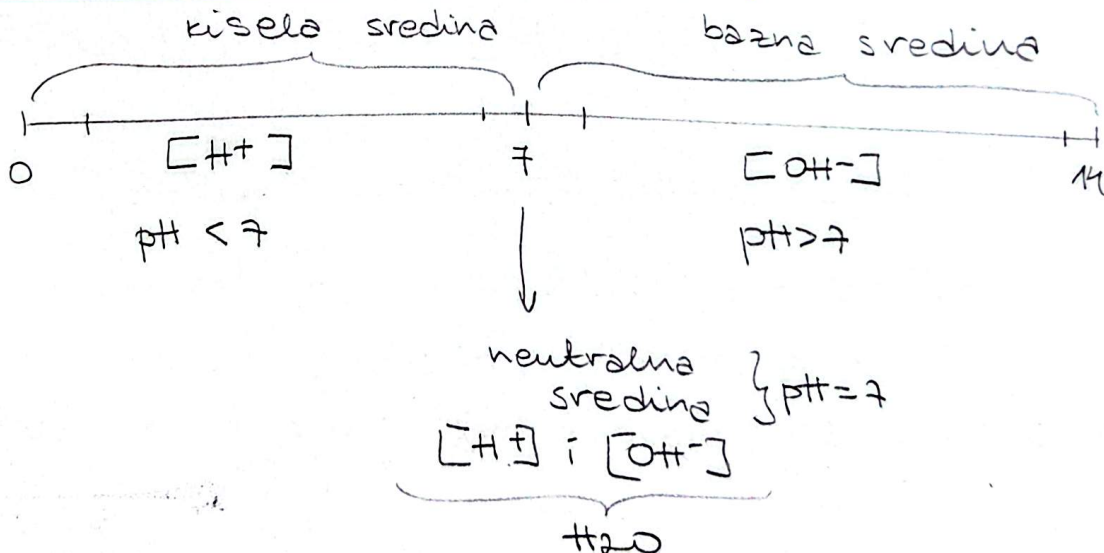 kisela sredina bazna sredina
0 [H+] 7 [OH-] 14
pH < 7 pH>7
neutralna
sredina } pH=7
[H+] i [OH-]
H2O